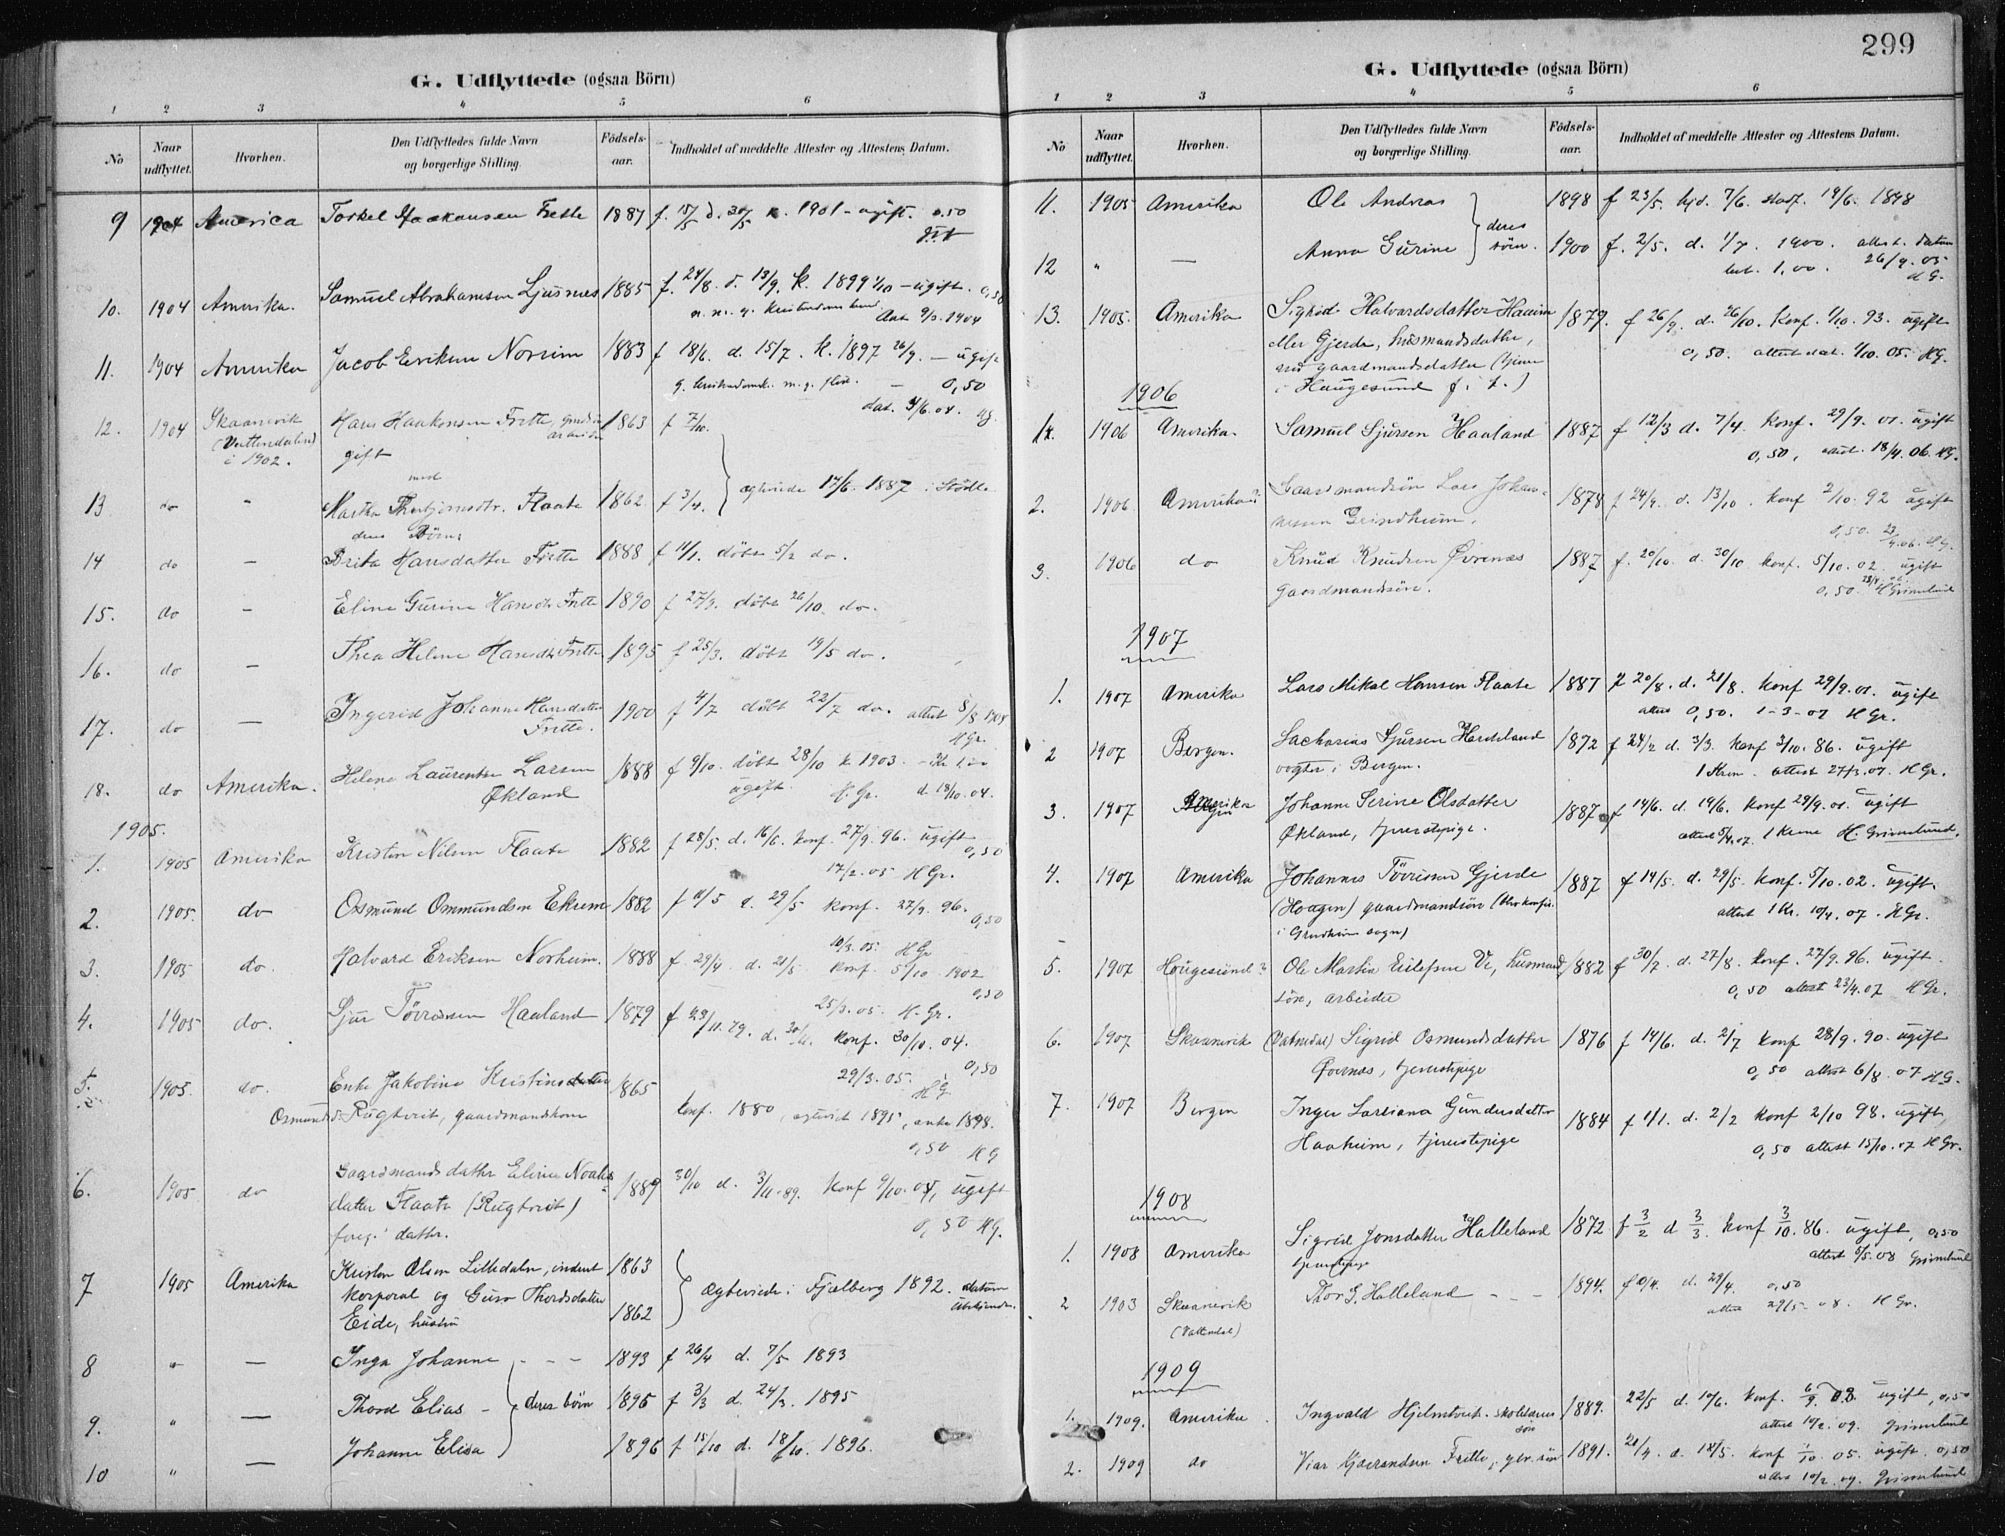 299
G. Udflyttede (ogsaa Börn)
1 2 3 4 5 6
No
Naar udflyttet.
Hvorhen.
Den Udflyttedes fulde Navn
og borgerlige Stilling.
Födsels-
aar.
Indholdet af meddelte Attester og Attestens Datum.
9 1904 America Torkel Haakonsen Frette 1887 f. 18/5 d. 30/5 k. 1901 - ugift. 0.50
10. 1904 Amerika. Samuel Abrahamsen Ljusnes 1885 f. 24/8. d. 13/9. k. 1899 1/10 - ugift. 0,50
Aat 9/3. 1904
11. 1904 Amerika Jacob Eriksen Noreim 1883 f 18/6. d. 15/7. k. 1897 26/9. - ugift
0,50
dat. 3/6.04.
12. 1904 Skaanevik Hans Haakonsen Frette, 1863 f 7/10.
i 1902. gift
med
13 do " Martha Flaate 1862 f 3/4. ægtviede 17/6. 1887 i Stødle
deres Börn:
14 do — Brita Hansdatter Frette 1888 f 11/1. döbt 5/2 do.
15. do — Eline Gurine Hansdtr Frette 1890 f 27/9. döbt 26/10. do.
16. do — Thea Helene Hansdtr Frette 1895 f 25/3. döbt 19/5 do.
17. do — Ingerid Johanne Hansdatter 1900 f 4/7 döbt 22/7 do. attest 5/8 1904
Frette. H Gr.
18. do Amerika. Helene Laurentse Larsen 1888 f 9/10. döbt 28/10 k 1903.
Økland ugift. H. Gr. d. 18/10.04.
1905.
1. 1905 Amerika Kristen Nilsen Flaate 1882 f 28/5. d. 16/6. konf. 27/9. 96. ugift
0,50
17/2. 05 H Gr.
2. 1905. do Osmund Ommundsen Ekrem 1882 f 11/5 d. 29/5 konf. 27/9. 96.
0,50
10/3. 05. H Gr
3. 1905 do. Halvard Eriksen Norheim. 1888 f. 29/4 d. 21/5 konf. 5/10. 1902
0,50
25/3. 05. H. Gr.
4. 1905 do. Sjur Törresen Haaland 1879 f 23/11. 79. d. 30/11. konf. 30/10. 04.
0,50
29/3. 05. H G.
5. 1905. do. Enke Jakobine Kristine 1865
Osmundsd. Rugtveit, gaardmandskone konf. 1880, ægteviet 1895, enke 1898.
0,50 H G
6. 1905 do Gaardmandsdatter Eline Noahs- 1889 30/10 d. 3/11.89. konf 9/10. 04, ugift
datter Flaate (Rugtveit) 0,50 H G.
foreg. datter.
7 1905 Amerika Kristen Olsen Litledalen, 1863
korporal og Guro Thordsdatter Ægteviede i Fjelberg 1892. datum
Eide, hustru 1862
8 " — Inga Johanne - - - 1893 f 26/4 d. 7/5 1893
9. " — Thord Elias - deres börn 1895 f 3/3 d. 24/3. 1895
10 " — Johanne Elisa 1896 f 15/10 d. 18/10. 1896.
G. Udflyttede (ogsaa Börn)
1 2 3 4 5 6
No
Naar udflyttet.
Hvorhen.
Den Udflyttedes fulde Navn
og borgerlige Stilling.
Födsels-
aar.
Indholdet af meddelte Attester og Attestens Datum.
11. 1905 Amerika Ole Andreas 1898 f 23/5. hjd. 7/6. stadf. 19/6. 1898
deres
12 " — Anna Gurine börn. 1900 f. 2/5. d. 1/7. 1900. attest. datum
bet. 1,00. 26/9. 05
H G.
13. 1905. Amerika Sigrid Halvardsdatter Haaeim 1879. f 26/9. d. 26/10. konf. 1/10. 93. ugift
eller Gjerde, husmandsdatter, 0,50. attest dat. 1/10. 05. H G.
nu gaardmandsdatter (tjener
i Haugesund f. t.)
1906
1. 1906 Amerika. Samuel Sjursen Haaland 1887 f 12/3 d. 7/4. konf. 29/9. 01. ugift
0,50, attest. 18/4. 06. H G.
2. 1906 Amerika? Gaardmandssön Lars Johan- 1878 f 24/9. d. 13/10. konf 2/10. 92 ugift
nessen Grindheim. 0,50. 23/4.06. H G.
3. 1906 do Knud Knudsen Øvrenes 1887 f. 20/10. d. 30/10 konf. 5/10. 02. ugift
gaardmandssön. 0,50 H Grimelund
1907
1. 1907 Amerika Lars Mikal Hansen Flaate 1887 f 20/8. d. 21/8. konf 29/9.01. ugift
attest 0,50. 1-3-07 H Gr.
2 1907 Bergen. Sacharias Sjursen Haaland 1872 f 24/2 d. 3/3. konf 3/10. 86. ugift
vogter i Bergen. 1 Kron. attest 27/3.07. H Gr.
3. 1907 Amerika Johanne Serine Olsdatter 1887 f 14/6. d. 19/6. konf 29/9. 01. ugift
Økland, tjenestepige. attest 5/4.07. 1 krone H. Grimelund.
4. 1907 Amerika Johannes Törrissen Gjerde 1887 f 14/5. d. 29/5. konf. 5/10. 02. ugift.
(Haugen) gaardmandssön (blev konfir. attest 1 Kr. 10/4. 07. H Gr.
i Grindheim sogn)
5. 1907 Hougesund? Ole Martin Eilefsen Ve, husmands 1882 f 30/7. d. 27/8. konf. 27/9. 96. ugift.
sön, arbeider 0,50 attest 23/4.07 H Gr.
6. 1907 Skaanevik (Vatnedal) Sigrid Osmundsdatter 1876 f 14/6. d. 2/7 konf 28/9. 90. ugift
Øvrenes, tjenestepige 0,50 attest 6/8. 07 H G.
7. 1907 Bergen Inger Gundersdatter 1884 f 1/1. d. 2/2 konf 2/10 98. ugift,
Haaheim, tjenestepige 0,50 attest 15/10. 07 H Gr.
1908
1. 1908 Amerika Sigrid Jonsdatter Halleland 1872 f 3/2 d 3/3. konf 3/10. 86. ugift, 0,50
tjenestepige attest 5/5. 08 Grimelund
2 1903 Skaanevik Thor S. Halleland - - - 1894. d. 29/4. 0,50
(Vattendal) attest 29/5 - 08. H Gr.
1909
1. 1909. Amerika Ingvald Hjelmtveit. skolelærer 1889. 22/5 d. 10/6. konf. 6/9. 03. ugift, 0,50
sön attest 10/2. 09. Grimelund
2. 1909 do Viar Frette, gbr. sön 1891. 21/4. d. 18/5. konf 1/10. 05. ugift. 0,50
attest 10/2. 09. Grimelund